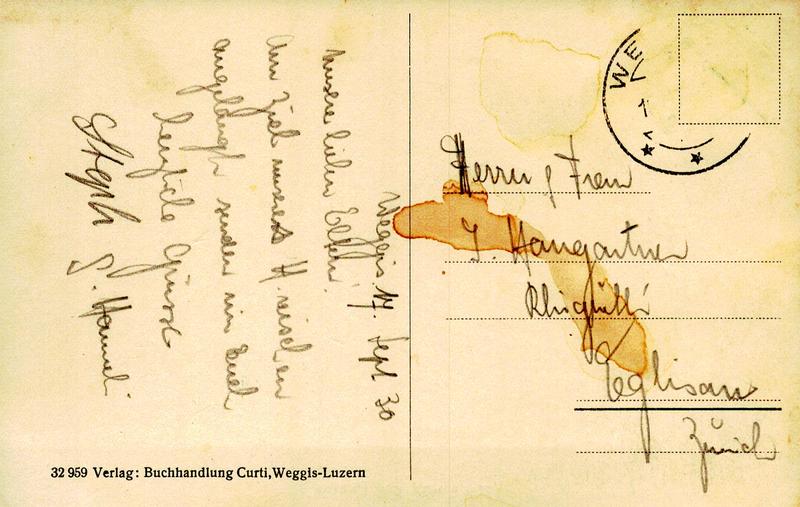 Weggis 17. Sept 30
Unsere lieben Eltern!
Am Ziel unserer H.reischen
angelangt senden wir Euch
herzliche Grüsse
Steph
S. Hanneli
WE
Herrn & Frau
J. Hangartner
Rhigütli
Eglisau
Zürich
32 959 Verlag: Buchhandlung Curti, Weggis-Luzern